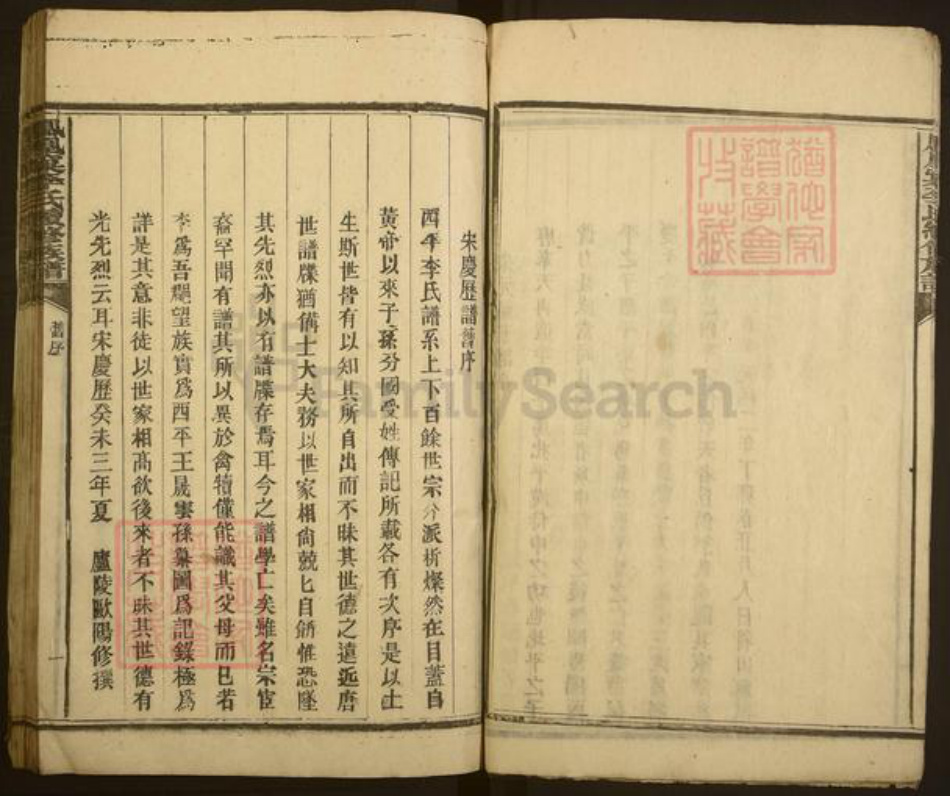 宋慶歷譜舊序
西平李氏譜系上下百餘世宗分派析燦然在目蓋自
黃帝以來子孫分國受姓傳記所載各有次序是以士
生斯世皆有以知其所自出而不昧其世德之遠近唐
世譜牒猶備士大夫務以世家相尚兢匕自飭惟恐墜
其先烈亦以有譜牒存焉耳今之譜學亡矣雖名宗宦
裔罕聞有譜其所以異於禽犢僅能識其父母而已若
李為吾郡望族實為西平王晟雲孫纂圖為記錄極為
詳是其意非徒以世家相高欲後來者不昧其世德有
光先烈云耳宋慶歷癸未三年夏 廬陵歐陽修撰
舊序
一
猶他家譜學會收藏
FamilySearch